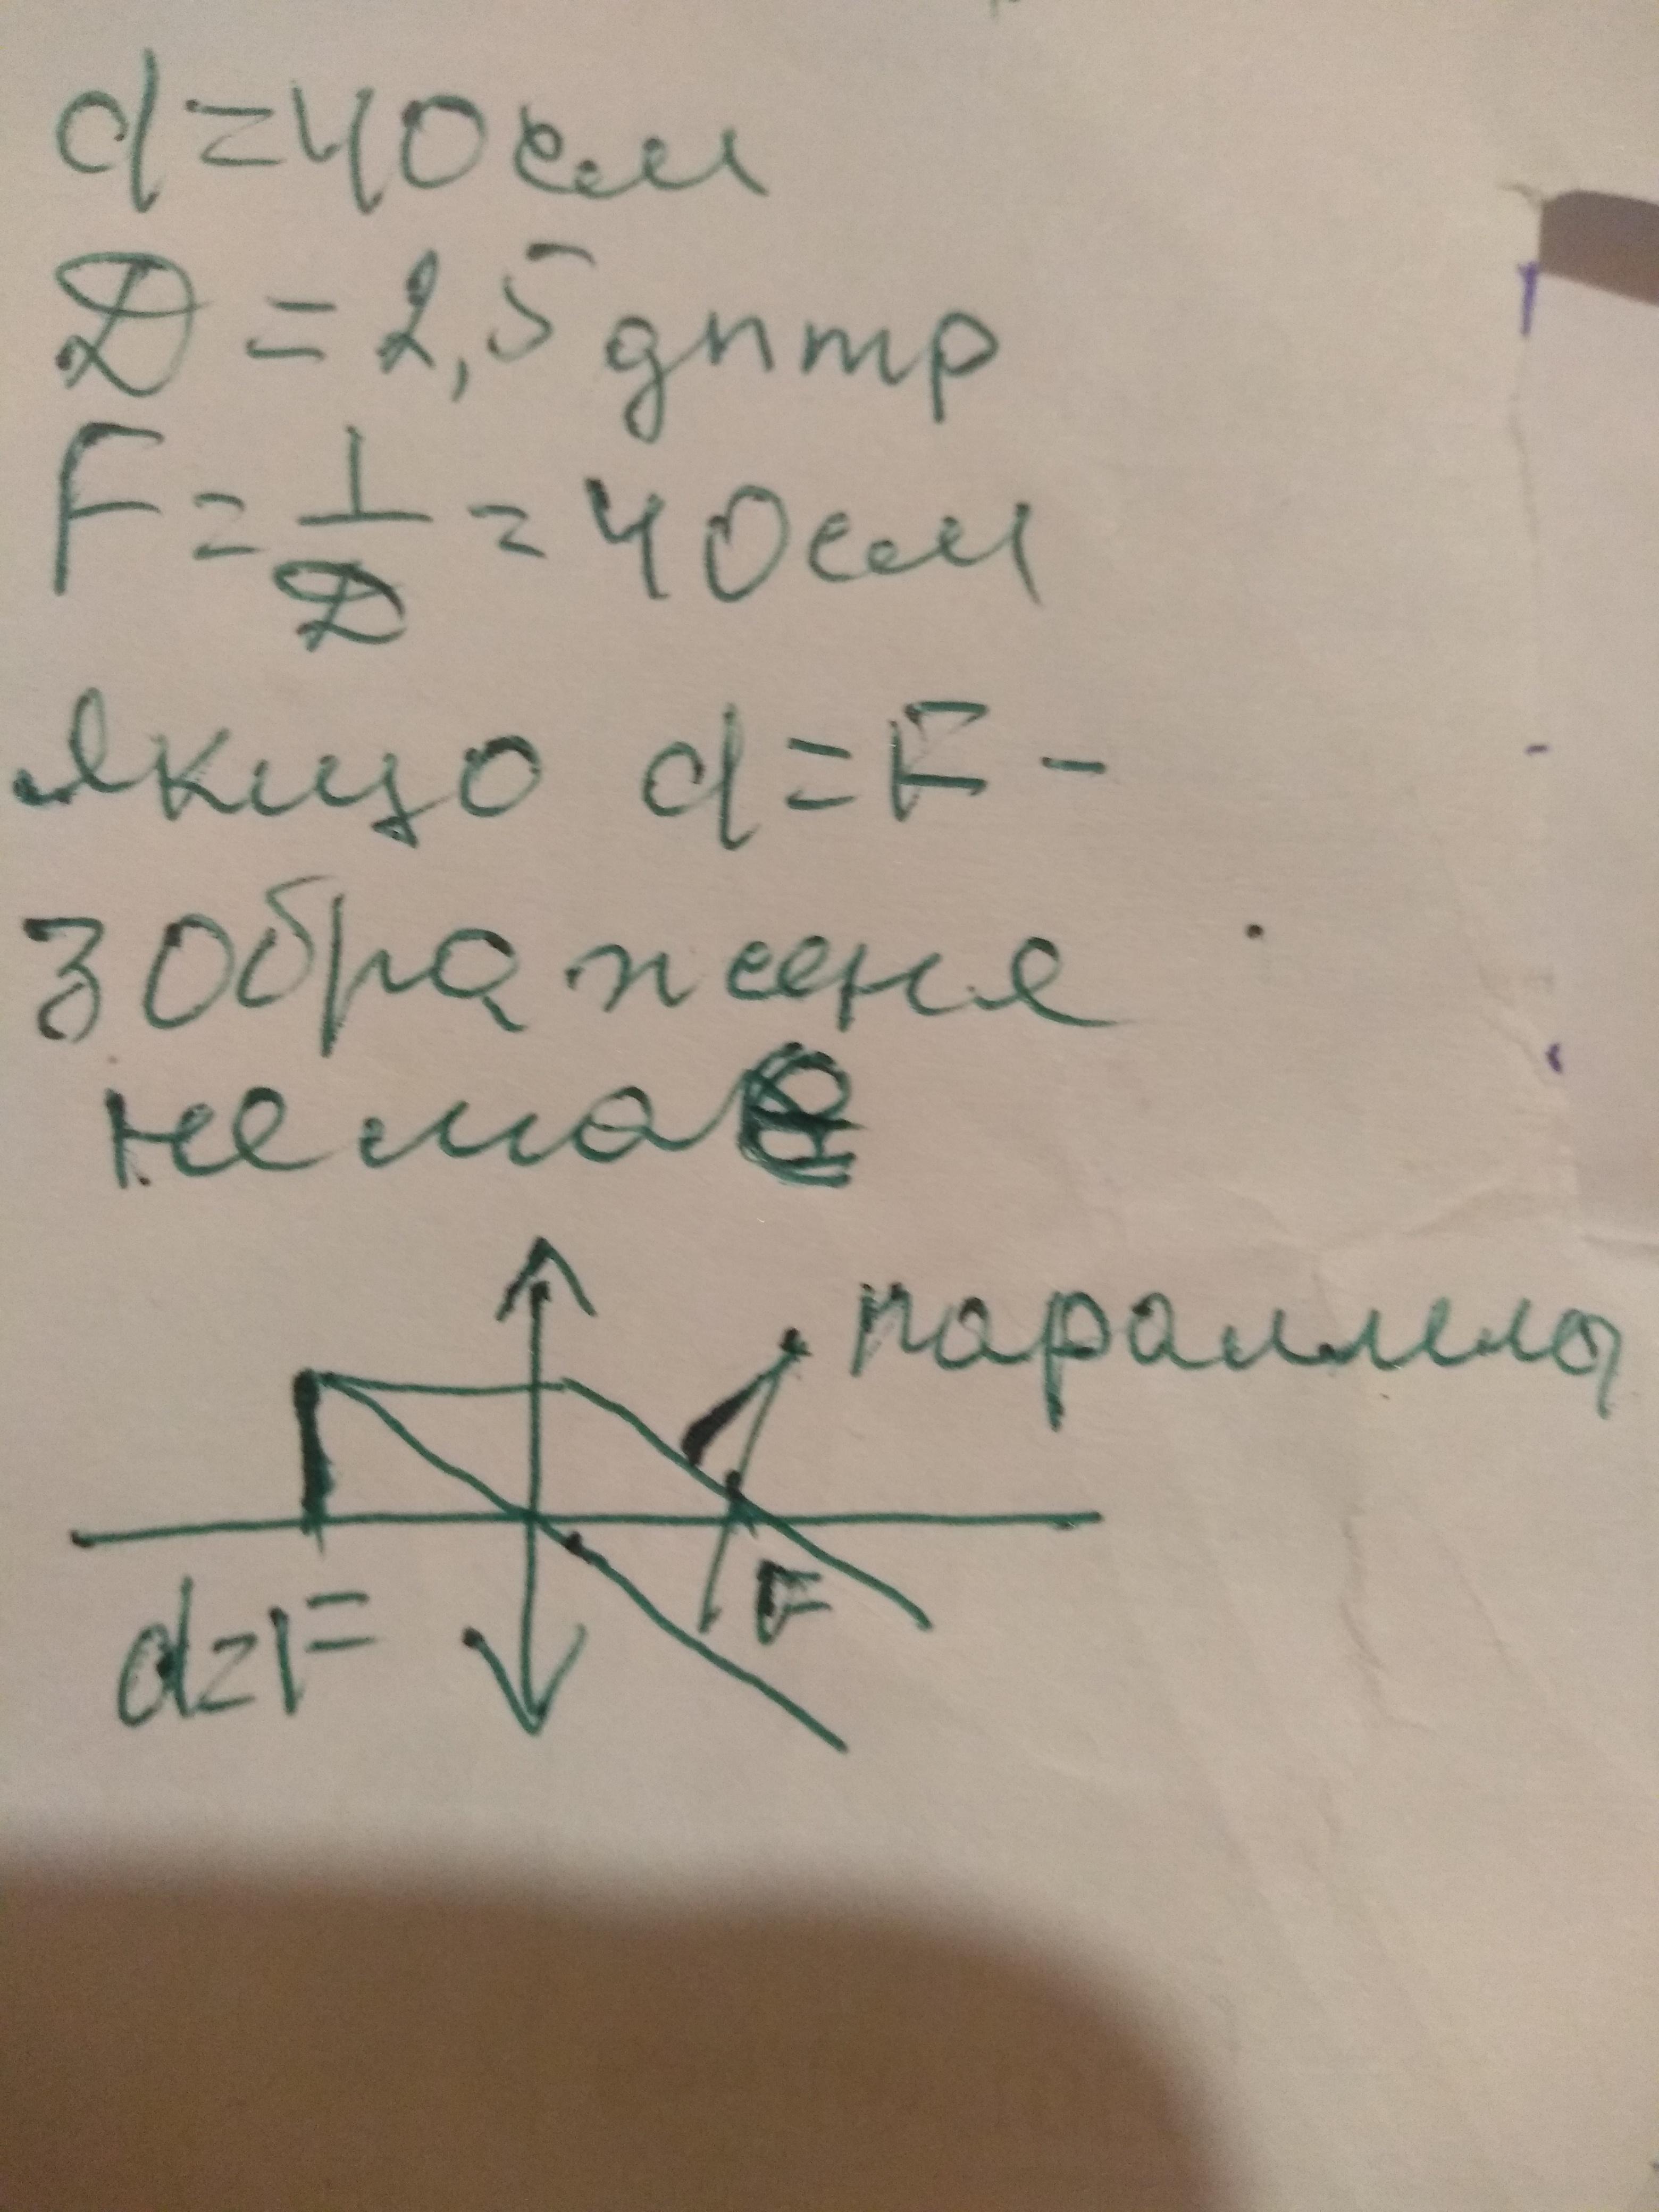 d=40см
D=2,5дптр
F=1/D=40см
Якщо d=F-
зображеня
немає
паралельно
d=F
F